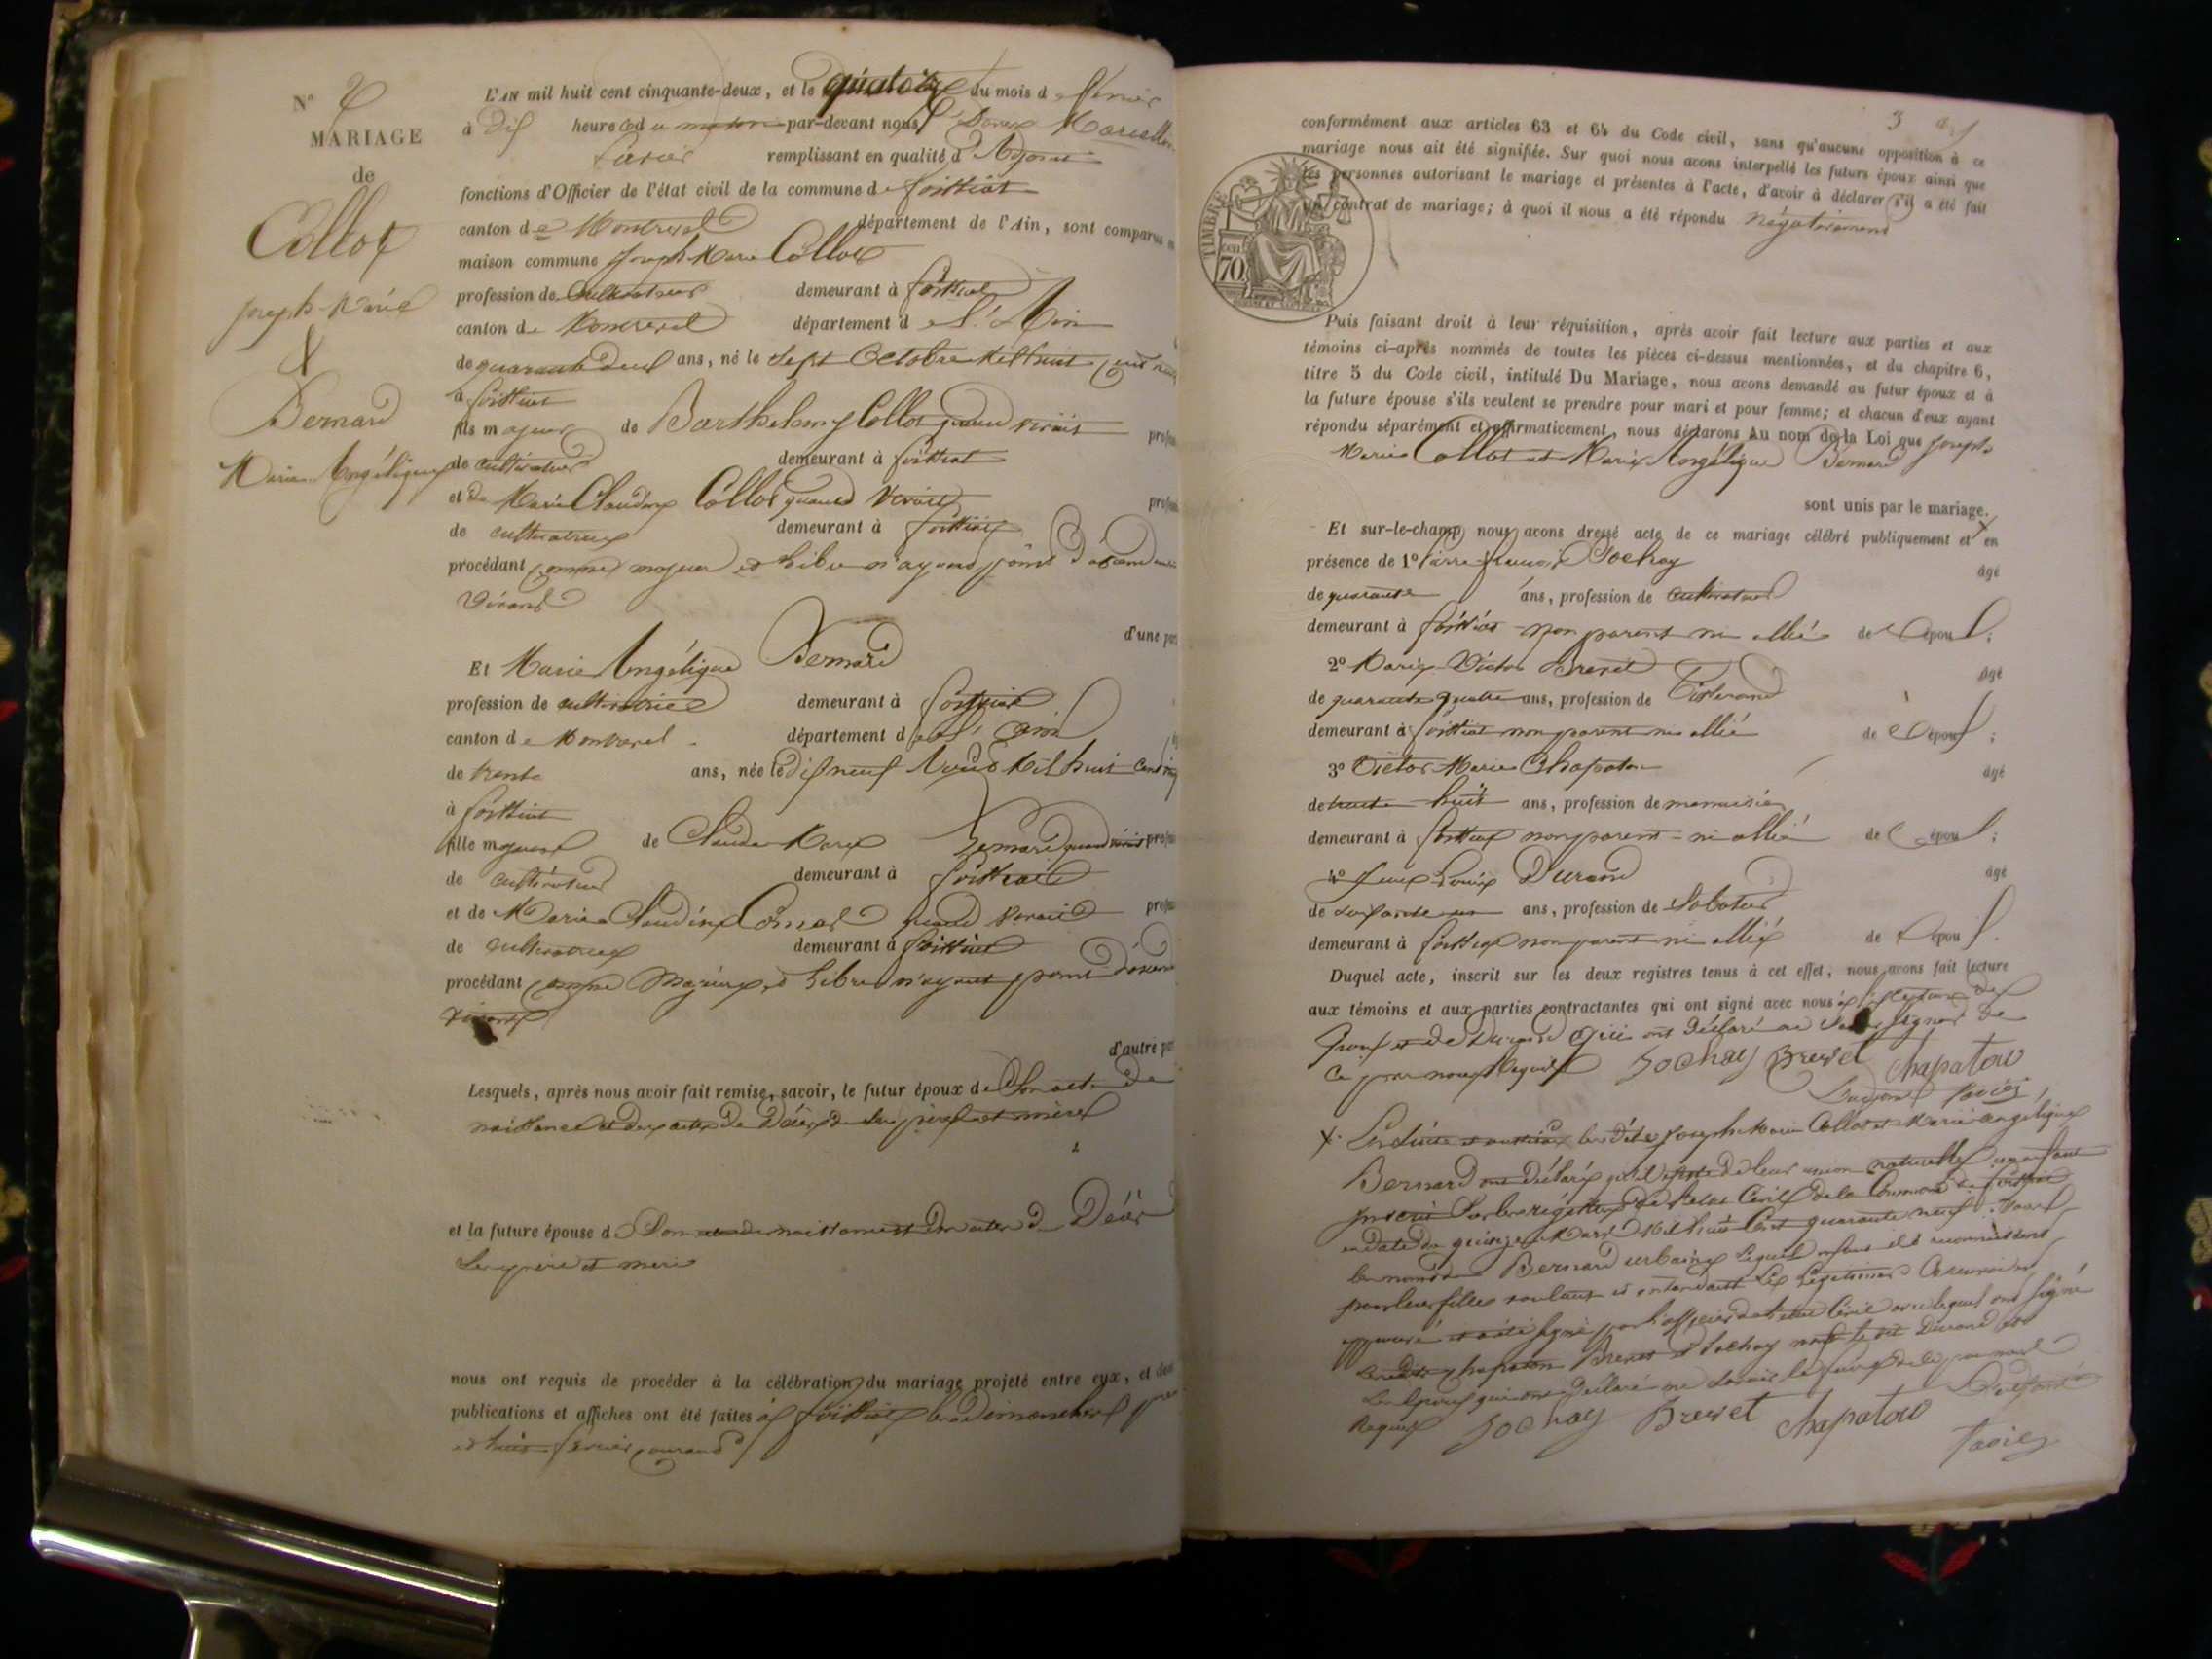 N°
MARIAGE
de
Collot
Joseph-Marie
&
Bernard
Marie Angélique
L'AN mil huit cent cinquante-deux, et le quatorze du mois de février
à dix heures du matin par-devant nous
remplissant en qualité d'Adjoint
fonctions d'Officier de l'état civil de la commune de foissiat
canton de Montrevel département de l'Ain, sont comparus en
maison commune Joseph Marie Collot
profession de Cultivateur demeurant à foissiat
canton de Montrevel département de l'Ain
de quarante deux ans, né le Sept Octobre mil huit cent neuf
à foissiat
fils majeur de Barthelemy Collot quand vivait
de cultivateur demeurant à foissiat
et de Marie Claudine Collot quand vivait
de cultivatrice demeurant à foissiat
procédant comme majeur et libre n'ayant point d'ascendants
vivants
d'une part
Et Marie Angélique Bernard
profession de cultivatrice demeurant à foissiat
canton de Montrevel département de l'ain
de trente ans, née le dix neuf Mil huit cent
à foissiat
fille majeure de Claude Marie Bernard quand vivait
de cultivateur demeurant à foissiat
et de Marie Claudine quand vivait
de cultivatrice demeurant à foissiat
procédant comme Majeure et libre n'ayant point
vivants
d'autre part
Lesquels, après nous avoir fait remise, savoir, le futur époux de Son acte de
naissance et des actes de Décès de Ses père et mère
et la future épouse de Son acte de naissance et des actes de Décès
Ses père et mère
nous ont requis de procéder à la célébration du mariage projeté entre eux, et dont
publications et affiches ont été faites à foissiat les dimanches
et huit février courant
3
conformément aux articles 63 et 64 du Code civil, sans qu'aucune opposition à ce
mariage nous ait été signifiée. Sur quoi nous avons interpellé les futurs époux ainsi que
les personnes autorisant le mariage et présentes à l'acte, d'avoir à déclarer s'il a été fait
un contrat de mariage; à quoi il nous a été répondu négativement
TIMBRE
70
Puis faisant droit à leur réquisition, après avoir fait lecture aux parties et aux
témoins ci-après nommés de toutes les pièces ci-dessus mentionnées, et du chapitre 6,
titre 5 du Code civil, intitulé Du Mariage, nous avons demandé au futur époux et à
la future épouse s'ils veulent se prendre pour mari et pour femme; et chacun d'eux ayant
répondu séparément et affirmativement, nous déclarons Au nom de la Loi que Joseph
Marie Collot et Marie Angélique Bernard
sont unis par le mariage.
Et sur-le-champ nous avons dressé acte de ce mariage célébré publiquement et en
présence de 1° Pierre françois Sochay âgé
de quarante ans, profession de Cultivateur
demeurant à foissiat non parent ni allié de Epoux;
2° Marie Victor Brevet âgé
de quarante quatre ans, profession de Tisserand
demeurant à foissiat non parent ni allié de Epoux;
3° Victor Marie Chapaton âgé
de trente huit ans, profession de menuisier
demeurant à foissiat non parent ni allié de époux;
4° Louis Durand âgé
de soixante un ans, profession de Sabotier
demeurant à foissiat non parent ni allié de Epoux.
Duquel acte, inscrit sur les deux registres tenus à cet effet, nous avons fait lecture
aux témoins et aux parties contractantes qui ont signé avec nous à l'exception des
Epoux et de Durand qui ont déclaré ne savoir signer de
ce par nous Requis Sochay Brevet Chapaton
les dits Joseph Marie Collot et Marie Angélique
Bernard ont déclaré qu'il existe de leur union naturelle un enfant
inscrit Sur les régistres de l'état Civil de la Commune de foissiat
en date du quinze Mars Mil huit Cent quarante neuf Sous
les noms de Bernard urbaine Lequel enfant ils reconnaissent
pour leur fille voulant et entendant La Légitimer
approuvé et signé par l'officier de l'état Civil avec lequel ont signé
Chapaton Brevet et Sochay Durand et
les époux qui ont déclaré ne savoir le faire de ce par nous
Requis Sochay Brevet Chapaton